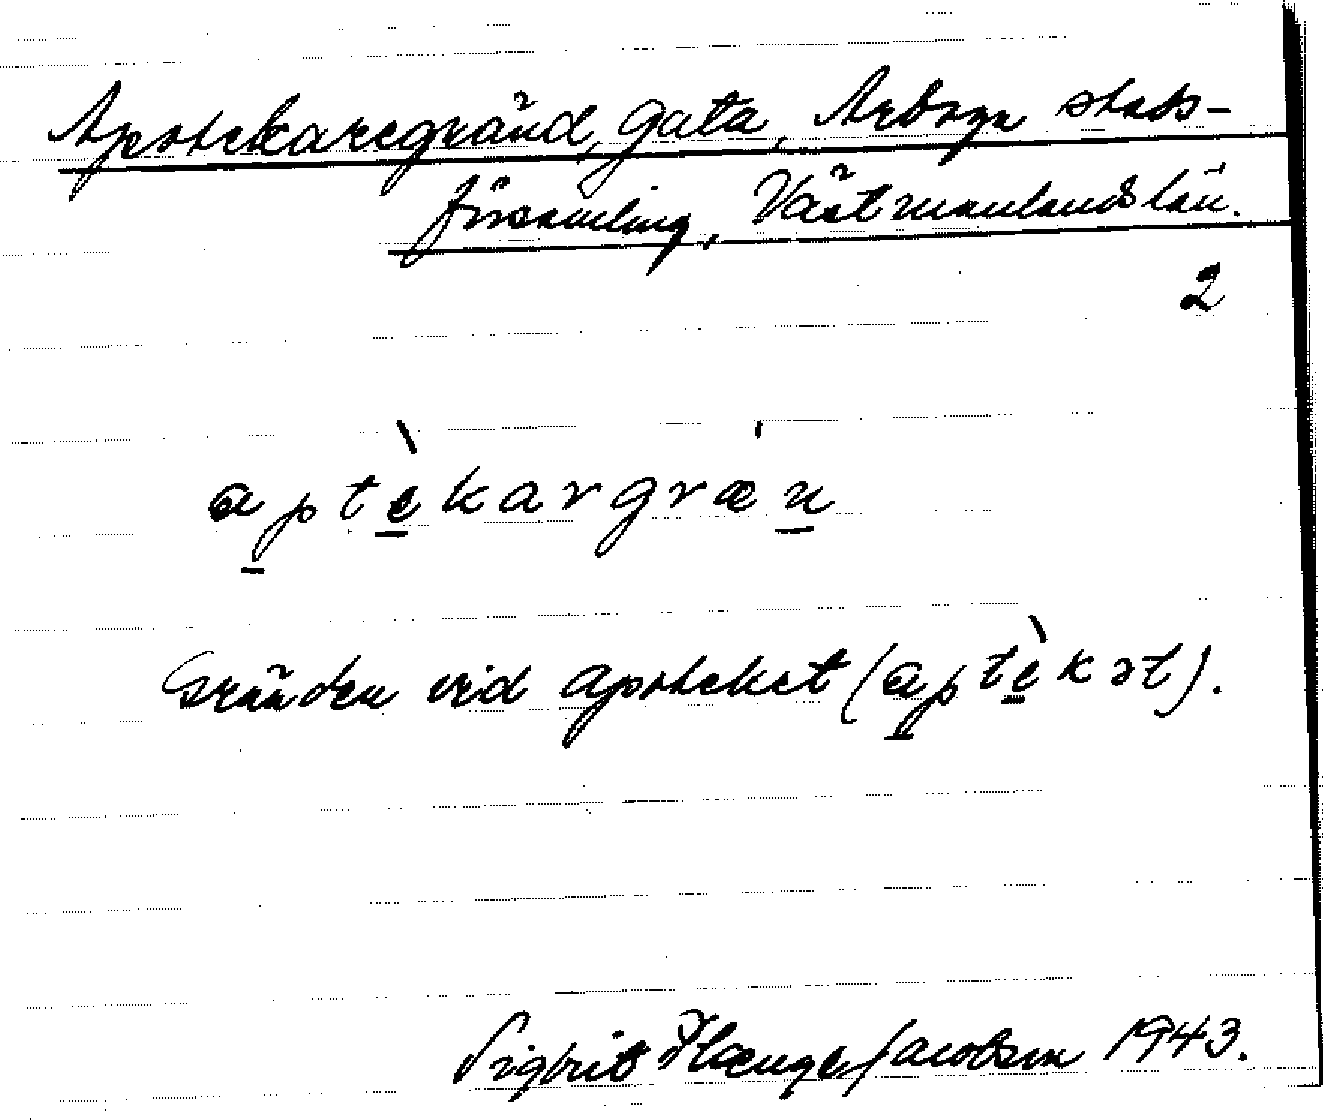 Apotekaregränd, gata, Arboga stads-
församling, Västmanlands län.
2
aptèkargræ'n
Gränden vid apoteket (aptèkət).
Sigbrit Plænge Jacobson 1943.